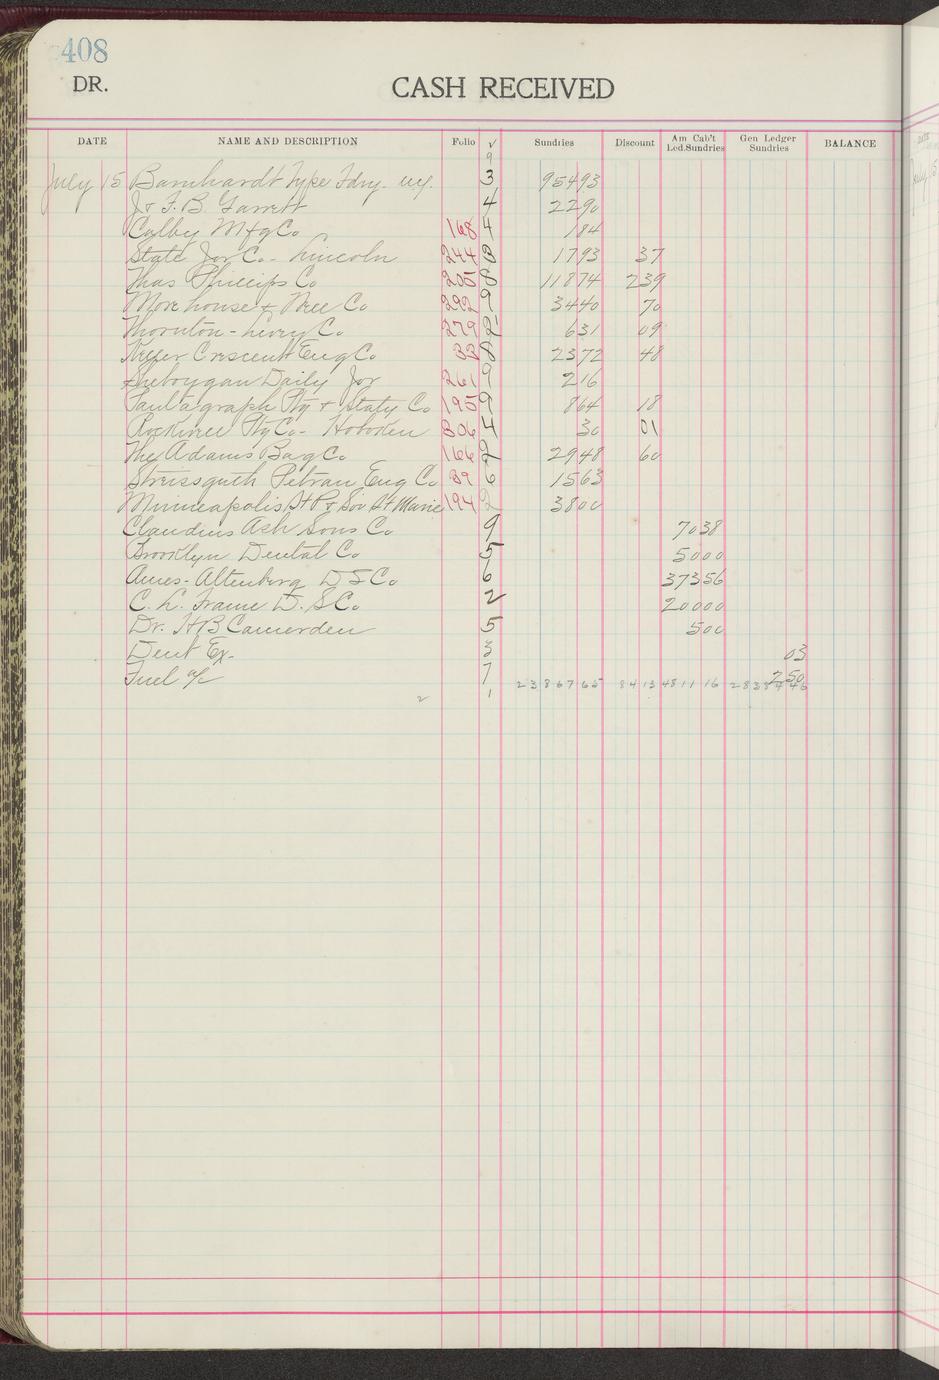 408
DR.
CASH RECEIVED
DATE NAME AND DESCRIPTION Folio √ Sundries Discount Am Cab't Led.Sundries Gen Ledger Sundries BALANCE
9
July 15 Barnhardt Type Fdry. NY. 3 95493
J & F. B. Garrett 4 2290
Colby Mfg Co 168 4 184
State Jor Co - Lincoln 244 3 1793 37
Thos Phillips Co 205 8 11874 239
Morehouse & Co 292 9 3440 70
Thornton - Levey Co 279 2 631 09
Keyer Crescent Eng Co 32 8 2372 48
Sheboygan Daily Jor 261 9 216
Pantagraph Ptg & Staty Co 195 9 864 18
Ptg Co - Hoboken 306 4 30 01
The Adams Bag Co 166 9 2948 60
Streissguth Petran Eng Co 39 6 1563
Minneapolis St P & Soo St Marie 194 2 3800
Claudius Ash Sons Co 9 7038
Brooklyn Dental Co 5 5000
Ames - Altenberg D S Co 6 37356
C. L. Frame D. S Co 2 20000
Dr. H B Camerden 5 500
Dent Ex. 3 03
Fuel a/c 7 250
2 1 2386765 8413 481116 2838446